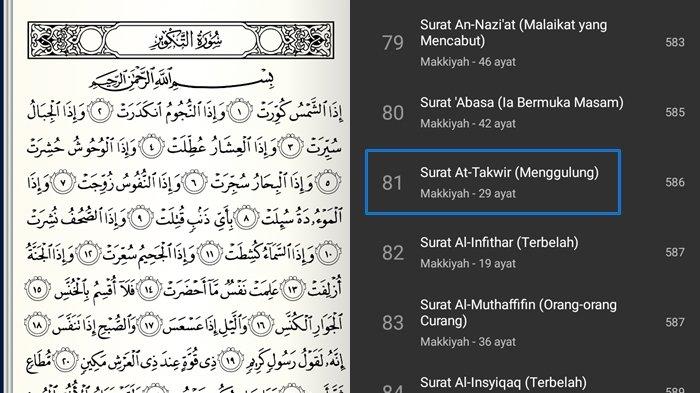 سُورَةُ التَّكْوِيرِ
بِسْمِ اللَّهِ الرَّحْمَٰنِ الرَّحِيمِ
إِذَا الشَّمْسُ كُوِّرَتْ ١ وَإِذَا النُّجُومُ انكَدَرَتْ ٢ وَإِذَا الْجِبَالُ
سُيِّرَتْ ٣ وَإِذَا الْعِشَارُ عُطِّلَتْ ٤ وَإِذَا الْوُحُوشُ حُشِرَتْ
٥ وَإِذَا الْبِحَارُ سُجِّرَتْ ٦ وَإِذَا النُّفُوسُ زُوِّجَتْ ٧ وَإِذَا
الْمَوْءُۥدَةُ سُئِلَتْ ٨ بِأَيِّ ذَنۢبٍ قُتِلَتْ ٩ وَإِذَا الصُّحُفُ نُشِرَتْ
١٠ وَإِذَا السَّمَآءُ كُشِطَتْ ١١ وَإِذَا الْجَحِيمُ سُعِّرَتْ ١٢ وَإِذَا الْجَنَّةُ
أُزْلِفَتْ ١٣ عَلِمَتْ نَفْسٌ مَّآ أَحْضَرَتْ ١٤ فَلَآ أُقْسِمُ بِالْخُنَّسِ ١٥
الْجَوَارِ الْكُنَّسِ ١٦ وَالَّيْلِ إِذَا عَسْعَسَ ١٧ وَالصُّبْحِ إِذَا تَنَفَّسَ ١٨
إِنَّهُۥ لَقَوْلُ رَسُولٍ كَرِيمٍ ١٩ ذِى قُوَّةٍ عِندَ ذِى الْعَرْشِ مَكِينٍ ٢٠ مُّطَاعٍ
79
Surat An-Nazi'at (Malaikat yang
Mencabut)
Makkiyah - 46 ayat
583
80
Surat 'Abasa (Ia Bermuka Masam)
Makkiyah - 42 ayat
585
81
Surat At-Takwir (Menggulung)
Makkiyah - 29 ayat
586
82
Surat Al-Infithar (Terbelah)
Makkiyah - 19 ayat
587
83
Surat Al-Muthaffifin (Orang-orang
Curang)
Makkiyah - 36 ayat
587
84
Surat Al-Insyiqaq (Terbelah)
589